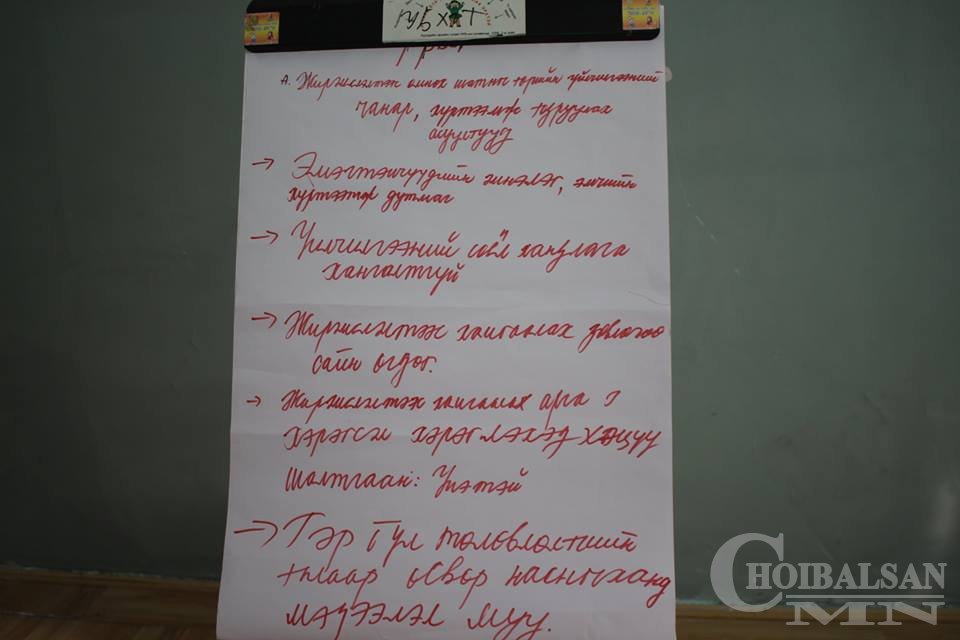 А. Жирэмслэлтэх анхан шатны төрийн үйлчилгээний
чанар, хүртээмж сурвалжлах
асуултууд
→ Эмэгтэйчүүдийн эмнэлэг, эмчийн
хүртээмж дутмаг
→ Үйлчилгээний соёл хандлага
хангалтгүй
→ Жирэмслэлтээс хамгаалах зөвлөгөө
сайн өгдөг.
→ Жирэмслэлтээс хамгаалах арга
хэрэгсэл хэрэглэхэд хэцүү
Шалтгаан: Үнэтэй
→ Гэр бүл төлөвлөлтийн
талаар өсвөр насныханд
мэдээлэл муу.
CHOIBALSAN
MN